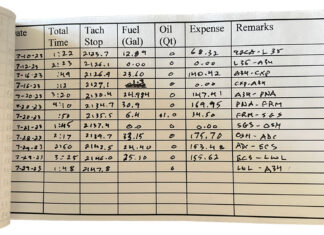 ate Total Time Tach Stop Fuel (Gal) Oil (Qt) Expense Remarks
7-10-23 1:22 2125.7 12.89 0 68.32 L35
7-12-23 2:23 2126.1 0.00 0 0.00 L35-A34
7-16-23 :49 2126.9 23.60 0 140.42 A34-CXP
7-16-23 :12 2127.1 0 0.00 CXP-A34
7-20-23 3:20 2130.4 24.984 0 147.41 A34-PNA
4:10 2134.7 30.9 0 169.95 PNA-FRM
:50 2135.5 6.4 01.0 34.50 FRM-SGS
7-21-23 1:45 2137.4 0.0 0 0.00 SGS-OSH
2:17 2139.7 33.15 0 175.70 OSH-
2:50 2142.5 24.40 0 153.48 -ECS
3:25 2146.0 25.10 0 155.62 ECS-LWL
7-29-23 1:48 2147.8 0 LWL-A34